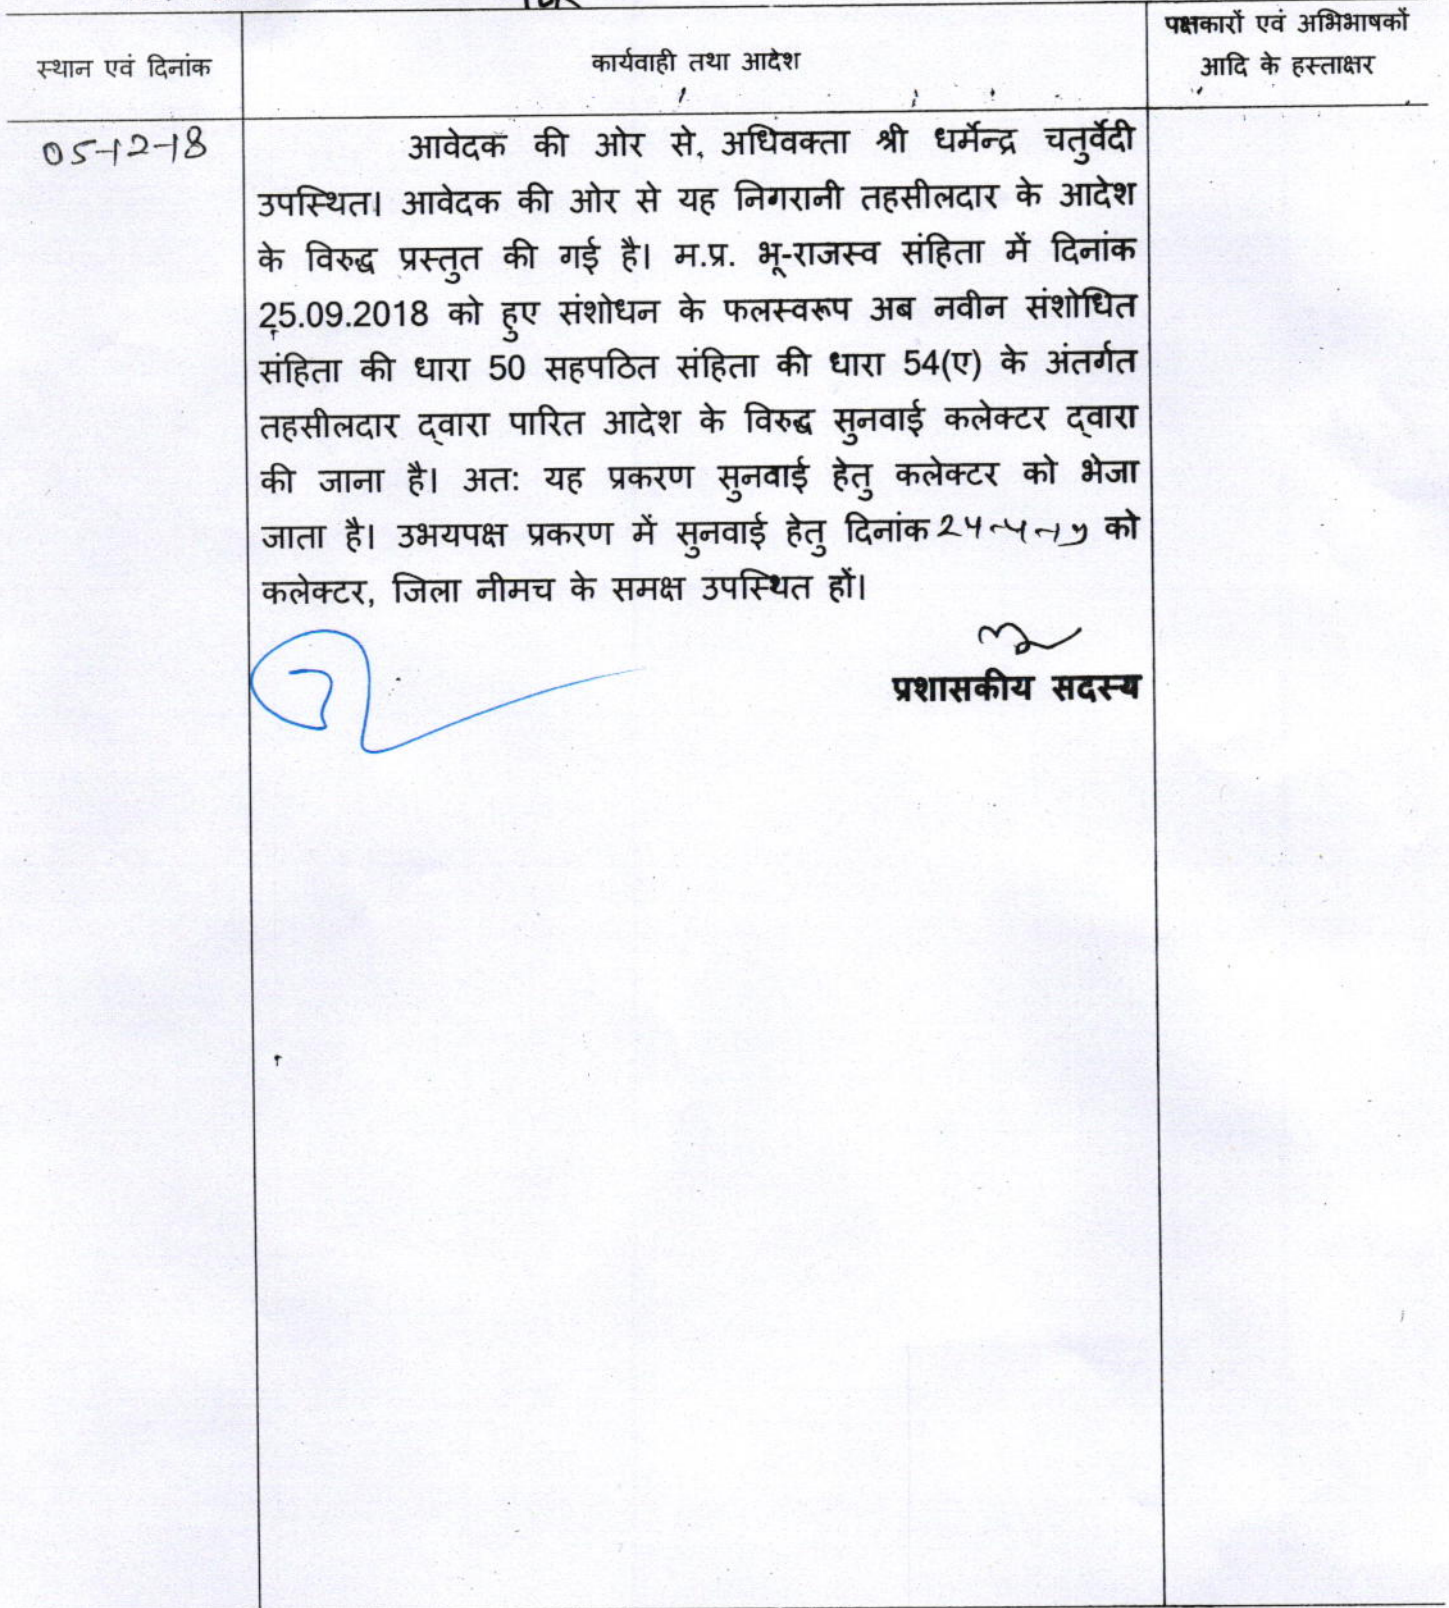 स्थान एवं दिनांक
कार्यवाही तथा आदेश
पक्षकारों एवं अभिभाषकों
आदि के हस्ताक्षर
05-12-18
आवेदक की ओर से, अधिवक्ता श्री धर्मेन्द्र चतुर्वेदी
उपस्थित। आवेदक की ओर से यह निगरानी तहसीलदार के आदेश
के विरुद्ध प्रस्तुत की गई है। म.प्र. भू-राजस्व संहिता में दिनांक
25.09.2018 को हुए संशोधन के फलस्वरूप अब नवीन संशोधित
संहिता की धारा 50 सहपठित संहिता की धारा 54(ए) के अंतर्गत
तहसीलदार द्वारा पारित आदेश के विरुद्ध सुनवाई कलेक्टर द्वारा
की जाना है। अतः यह प्रकरण सुनवाई हेतु कलेक्टर को भेजा
जाता है। उभयपक्ष प्रकरण में सुनवाई हेतु दिनांक को
कलेक्टर, जिला नीमच के समक्ष उपस्थित हों।
प्रशासकीय सदस्य